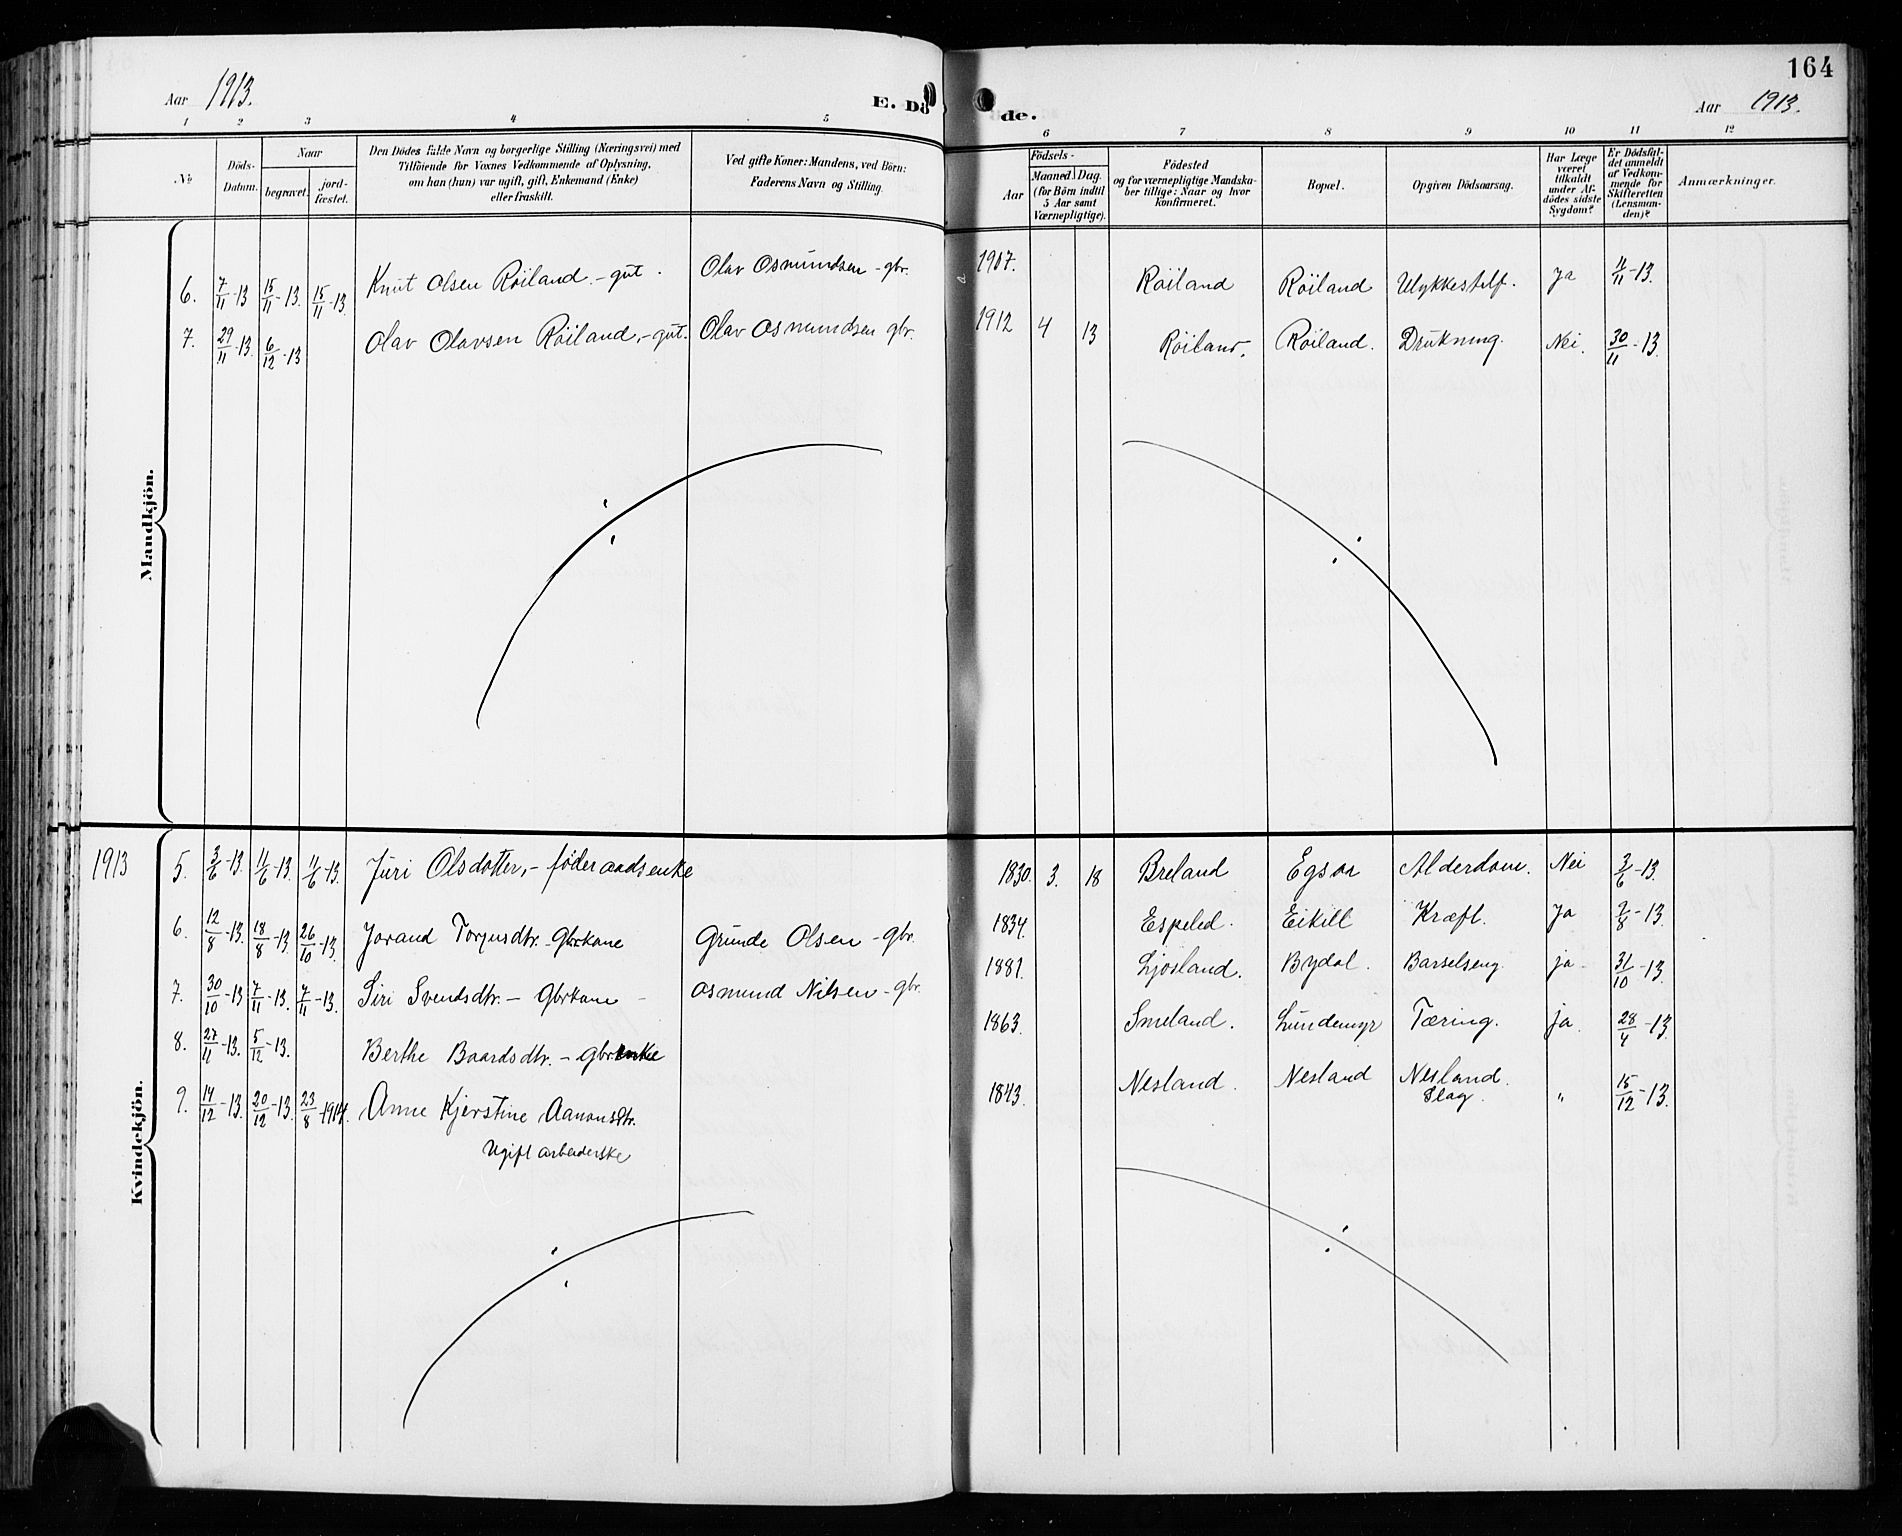 164
Aar 1913.
E. Dö de.
Aar 1913.
1 2 3 4 5 6 7 8 9 10 11 12
No
Döds-Datum.
Naar
begravet.
jord-fæstet.
Den Dödes fulde Navn og borgerlige Stilling (Næringsvei) med
Tilföiende for Voxnes Vedkommende af Oplysning,
om han (hun) var ugift, gift, Enkemand (Enke)
eller fraskilt.
Ved gifte Koner: Mandens, ved Börn:
Faderens Navn og Stilling.
Födsels-
Aar
Maaned
Dag.
(for Börn indtil
5 Aar samt
Værnepligtige).
Födested
og for værnepligtige Mandska-
ber tillige: Naar og hvor
konfirmeret.
Bopæl.
Opgiven Dödsaarsag.
Har Læge
været
tilkaldt
under Af-
dödes sidste
Sygdom?
Er Dödsfal-
det anmeldt
af Vedkom-
mende for
Skifteretten
(Lensman-
den)?
Anmærkninger.
Mandkjön.
6. 7/11-13 15/11-13. 15/11-13. Knut Olsen Röiland - gut. Olav Osmundsen - gbr. 1907. Röiland Röiland Ulykkestilf. Ja 11/11-13.
7. 29/11-13. 6/12-13 Olav Olavsen Röiland, - gut. Olav Osmundsen gbr. 1912 4 13 Röiland. Röiland. Drukning. Nei. 30/11-13.
Kvindekjön.
1913 5. 3/6-13. 11/6-13. 11/6-13. Juri Olsdotter, - föderaadsenke 1830. 3. 18 Breland Egsaa Alderdom. Nei 3/6-13.
6. 12/8-13. 18/8-13 26/10-13. Jorand Torjusdtr. - Gbrkone Gunde Olsen - gbr. 1834. Espeled. Eikill Kræft. Ja 7/8-13.
7. 30/10-13 7/11-13. 7/11-13. Siri Svendsdtr. - Gbrkone - Osmund Nilsen - gbr. 1881. Ljosland. Bydal. Barselseng ja - 31/10-13.
8. 27/11-13. 5/12-13. Berthe Baardsdtr. - gbrenke 1863. Smeland. Lundemyr Tæring. ja. 28/4-13.
9. 14/12-13. 20/12-13. 23/8-1914. Anne Kjerstine Aanonsdtr. 1843. Nesland. Nesland Nesland. „ 15/12-13.
Slag.
Ugift arbeiderske